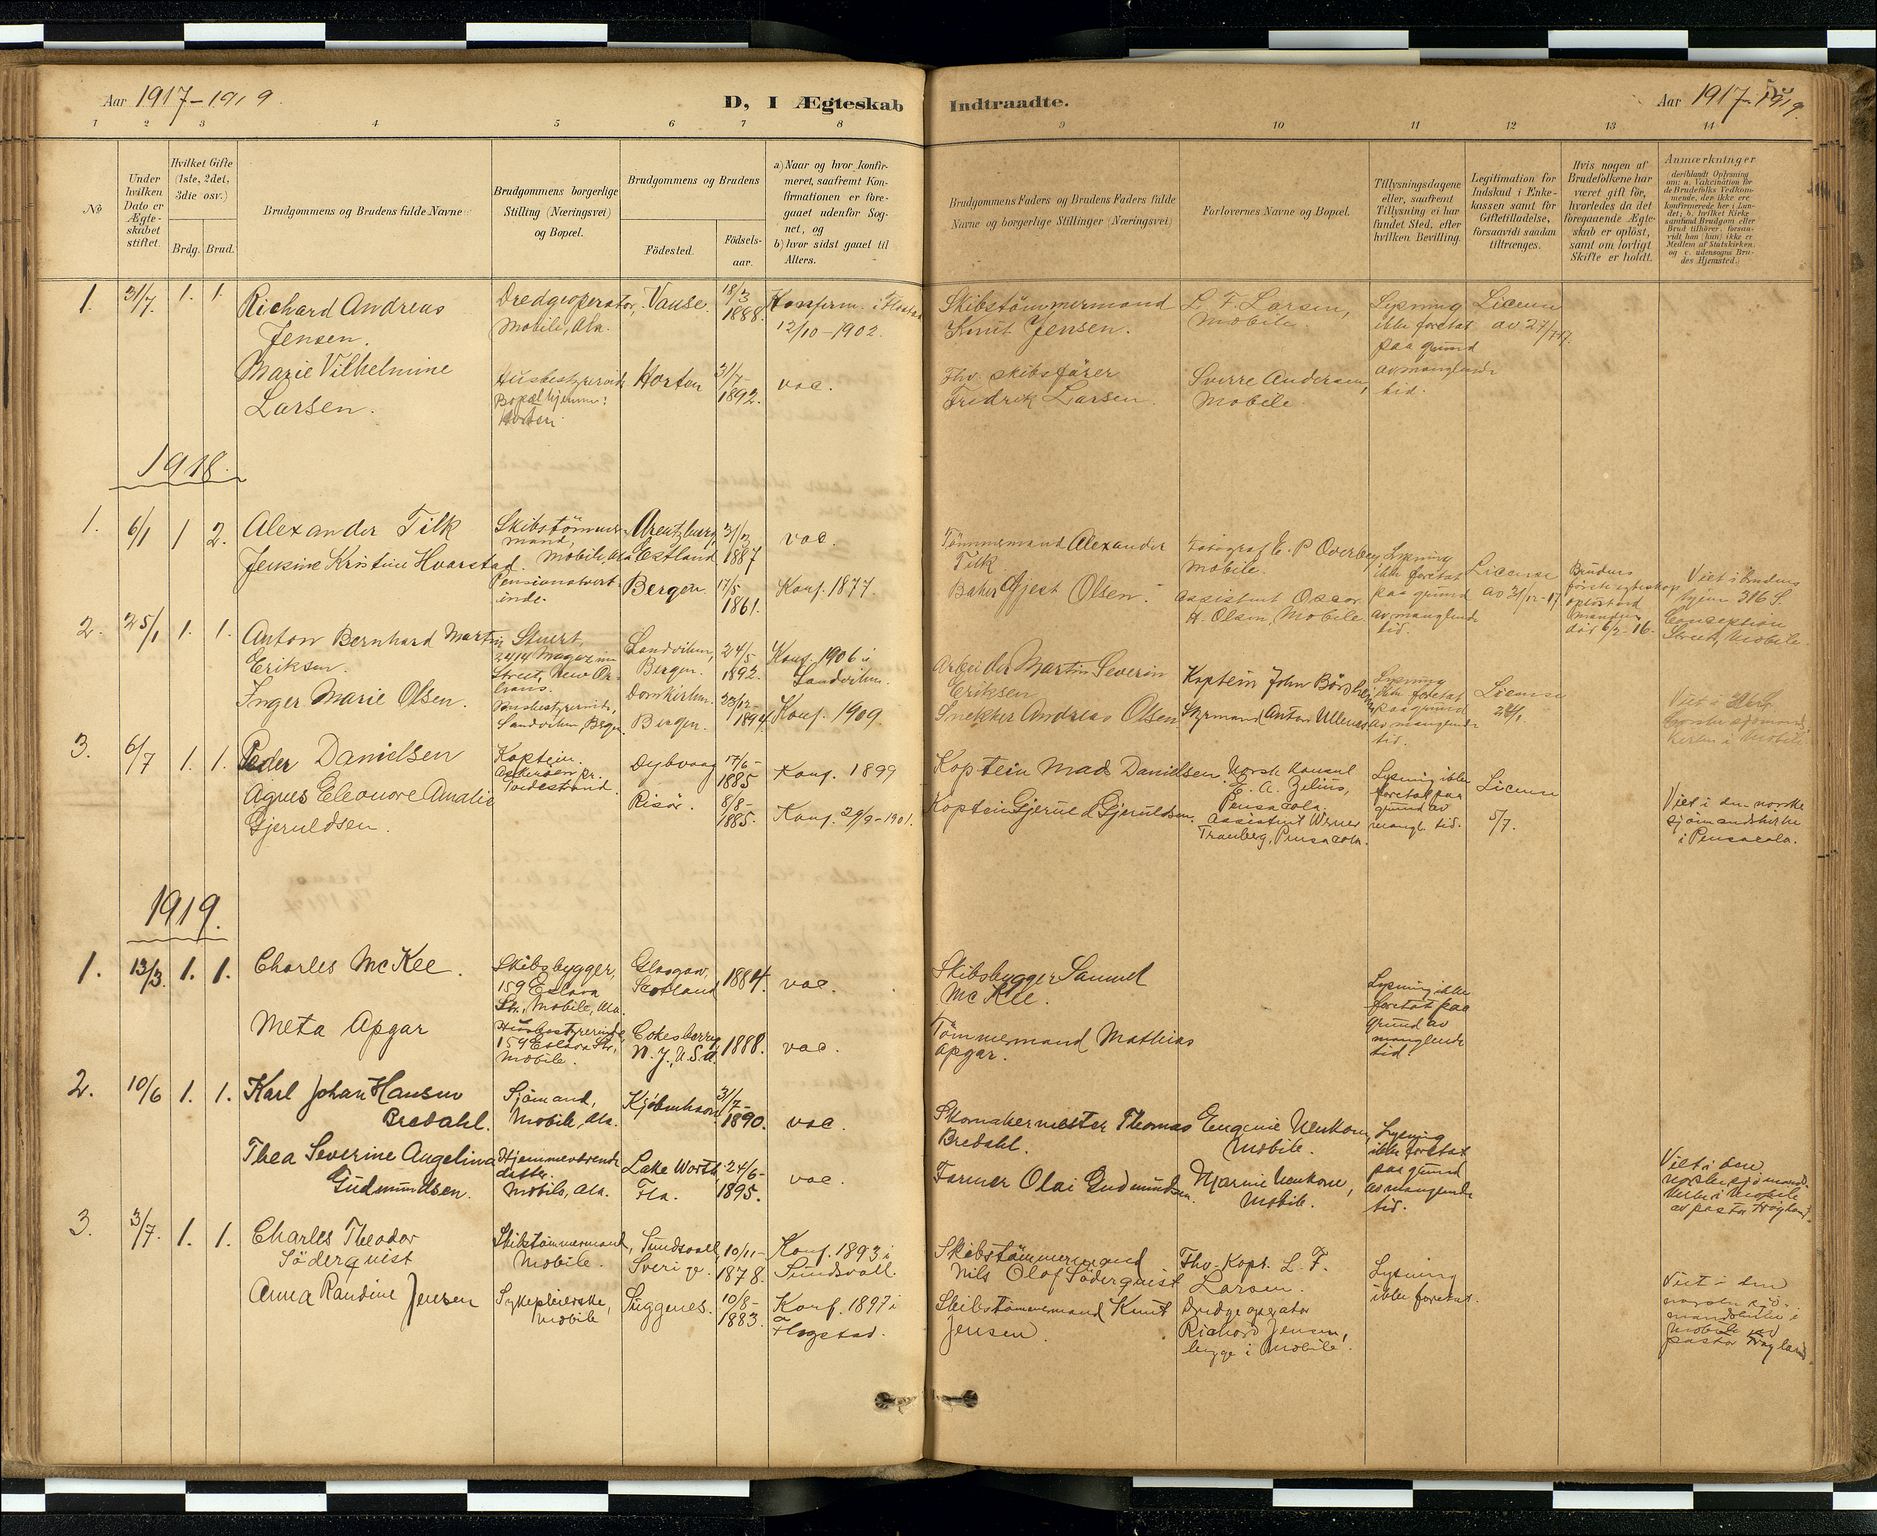 Aar 1917-1919.
D, I Ægteskab Indtraadte.
Aar 1917-1919.
1 2 3 4 5 6 7 8 9 10 11 12 13 14
No
Under
hvilken
Dato er
Ægte-
skabet
stiftet.
Hvilket Gifte
(1ste, 2det,
3die osv.)
Brdg. Brud.
Brudgommens og Brudens fulde Navne
Brudgommens borgerlige
Stilling (Næringsvei)
og Bopæl.
Brudgommens og Brudens
Födested.
Födsels-
aar.
a) Naar og hvor konfir-
meret, saafremt Kon-
firmationen er fore-
gaaet udenfor Sog-
net, og
b) hvor sidst gaaet til
Alters.
Brudgommens Faders og Brudens Faders fulde
Navne og borgerlige Stillinger (Næringsvei)
Forlovernes Navne og Bopæl.
Tillysningsdagene
eller, saafremt
Tillysning ei har
fundet Sted, efter
hvilken Bevilling.
Legitimation for
Indskud i Enke-
kassen samt for
Giftetilladelse,
forsaavidt saadan
tiltrænges.
Hvis nogen af
Brudefolkene har
været gift før,
hvorledes da det
foregaaende Ægte-
skab er oplöst,
samt om lovligt
Skifte er holdt.
Anmærkninger
(deriblandt Oplysning
om: a. Vakcination for
de Brudefolks Vedkom-
mende, der ikke ere
konfirmerede her i Lan-
det; b. hvilket Kirke-
samfund Brudgom eller
Brud tilhörer, forsaa-
vidt han (hun) ikke er
Medlem af Statskirken,
og c. udensogns Bru-
des Hjemsted.)
1. 31/7. 1. 1.
Richard Andreas
Jensen.
Dredgeoperator,
Mobile, Ala.
Vanse.
18/3
1888.
Konfirm. i
12/10-1902.
Skibstömmermand
Knut Jensen.
L. F. Larsen,
Mobile.
Lysning
ikke foretat
paa grund
av manglende
tid.
License
av 27/7-17.
Marie Vilhelmine
Larsen.
Husbestyrerinde
Bopæl hjemme:
Horten.
Horten
31/7-
1892.
vac.
Fhv. skibsförer
Fredrik Larsen.
Sverre Andersen,
Mobile.
1918.
1. 6/1 1 2.
Alexander Tilk
Skibstömmer-
mand,
Mobile, Ala
Arentzburg,
Estland
31/3
1887
vac.
Tömmermand Alexander
Tilk
Fotograf E. P. Overbey
Mobile.
Lysning
ikke foretat
paa grund
av manglende
tid.
License
av 31/12-17
Brudens
förste egteskap
oplöst ved
Manden
död 6/2-16.
Viet i Brudens
hjem 316 S.
Conception
Street, Mobile.
Jensine Kristine Hvarstad.
Pensionatvert-
inde.
Bergen
17/5-
1861.
Konf. 1877.
Baker Gjest Olsen.
Assistent Oscar
H. Olson, Mobile.
2. 25/1 1. 1.
Anton Bernhard Martin
Eriksen.
Stuert,
2414 Magazine
Street, New Or-
leans.
Sandviken,
Bergen.
24/5
1892.
Konf. 1906 i
Sandviken.
Arbeider Martin Severin
Eriksen
Kaptein John
Lysning
ikke foretat
paa grund
av manglende
tid.
License
24/1.
Inger Marie Olsen.
Husbestyrerinde,
Sandviken, Bergen.
Domkirken.
Bergen.
23/12-
1894.
Konf. 1909.
Snekker Andreas Olsen
Styrmand Anton Ullenæs
3. 6/7 1. 1.
Peder Danielsen
Kaptein.
Askeröen pr.
Tvedestrand.
Dybvaag
17/6-
1885
Konf. 1899
Kaptein Mads Danielsen.
Norsk Konsul
E. A. Zelius,
Pensacola.
Lysning ikke
foretat paa
grund av
mangl. tid.
License
5/7.
Viet i den norske
sjömandskirke
i Pensacola.
Agnes Eleonore Amalie
Gjeruldsen.
Risör.
8/8-
1885.
Konf. 29/9-1901.
Kaptein Gjerul d Gjeruldsen.
Assistent Werner
Tranberg, Pensacola.
1919.
1. 13/3. 1. 1.
Charles McKee.
Skibsbygger,
159 Eslava
Str., Mobile, Ala.
Glasgow,
Scotland
1884.
vac.
Skibsbygger Samuel
McKee.
Lysning ikke
foretat paa
grund av
manglende
tid.
Meta Apgar
Husbestyrerinde
159 Eslava Str.,
Mobile.
Cokesberry
N. J., U.S.A
1888.
vac.
Tömmermand Mathias
Apgar.
2. 10/6 1. 1.
Karl Johan Hansen
Bredahl.
Sjömand,
Mobile, Ala.
Kjöbenhavn
31/7-
1890.
vac.
Skomakermester Thomas
Bredahl.
Eugenie Neukom,
Mobile.
Lysning
ikke foretat
paa grund
av manglende
tid.
Viet i den
norske sjömands-
kirke i Mobile
av pastor Högland.
Thea Severine Angelina
Gudmundsen.
Hjemmeværende
datter
Mobile, Ala.
Lake Worth
Fla.
24/6-
1895.
vac.
Farmer Olai Gudmundsen
Marinie Neukom,
Mobile.
3. 3/7. 1. 1.
Charles Theodor
Söderquist
Skibstömmermand,
Mobile.
Sundsvall
Sverige.
10/11-
1878.
Konf. 1893 i
Sundsvall.
Skibstömmermand
Nils Olof Söderquist
Fhv. Kapt. L. F.
Larsen.
Lysning
ikke foretat.
Viet i den
norske sjö-
mandskirke i
Mobile ved
pastor Högland.
Anna Randine Jensen
Sykepleierske,
Mobile
10/8-
1883.
Konf. 1897 i
Skibstömmermand Knut
Jensen.
Dredgeoperator
Richard Jensen,
begge i Mobile.